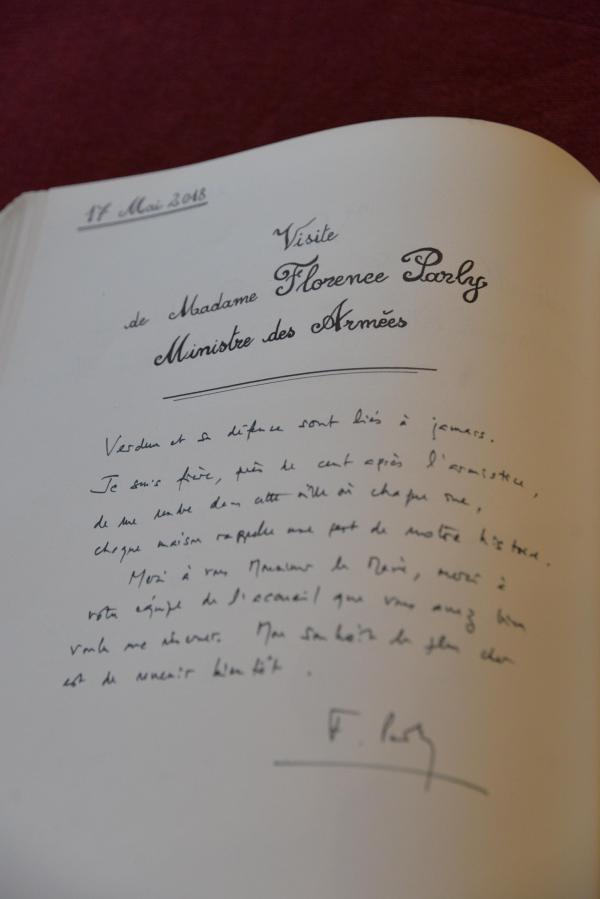 17 Mai 2018
Visite
de Madame Florence Parly
Ministre des Armées
Verdun et sa défense sont liés à jamais.
Je suis fière, près de cent après l'armistice,
de me rendre dans cette ville où chaque rue,
chaque maison rappelle une part de notre histoire.
Merci à vous Monsieur le Maire, merci à
votre équipe de l'accueil que vous avez bien
voulu me réserver. Mon souhait le plus cher
est de revenir bientôt.
F. Parly